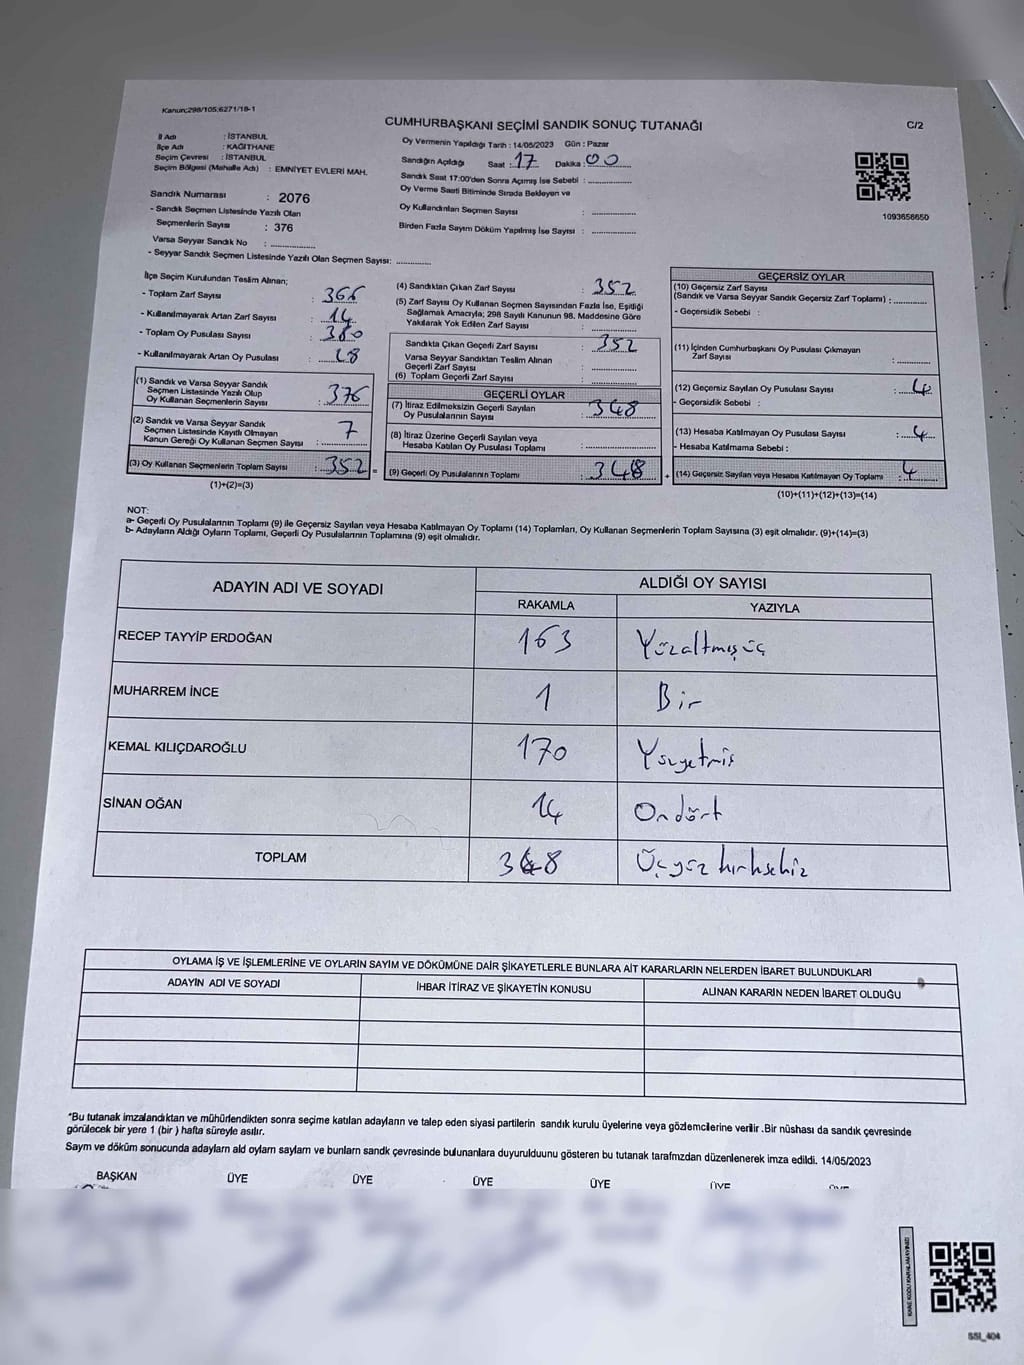 Kanun;298/105;6271/18-1
CUMHURBAŞKANI SEÇİMİ SANDIK SONUÇ TUTANAĞI
C/2
İl Adı : İSTANBUL
İlçe Adı : KAĞITHANE
Seçim Çevresi : İSTANBUL
Seçim Bölgesi (Mahalle Adı) : EMNİYET EVLERİ MAH.
Sandık Numarası : 2076
- Sandık Seçmen Listesinde Yazılı Olan
Seçmenlerin Sayısı : 376
Varsa Seyyar Sandık No : ................
- Seyyar Sandık Listesinde Yazılı Olan Seçmen Sayısı: ............
Oy Vermenin Yapıldığı Tarih : 14/05/2023 Gün : Pazar
Sandığın Açıldığı Saat : 17 Dakika : 00
Sandık Saat 17:00'den Sonra Açılmış İse Sebebi : ................
Oy Verme Saati Bitiminde Sırada Bekleyen ve
Oy Kullandırılan Seçmen Sayısı : ................
Birden Fazla Sayım Döküm Yapılmış İse Sayısı : ................
1093656650
İlçe Seçim Kurulundan Teslim Alınan;
- Toplam Zarf Sayısı : 366
- Kullanılmayarak Artan Zarf Sayısı : 14
- Toplam Oy Pusulası Sayısı : 380
- Kullanılmayarak Artan Oy Pusulası : 28
(1) Sandık ve Varsa Seyyar Sandık
Seçmen Listesinde Yazılı Olup
Oy Kullanan Seçmenlerin Sayısı : 376
(2) Sandık ve Varsa Seyyar Sandık
Seçmen Listesinde Kayıtlı Olmayan
Kanun Gereği Oy Kullanan Seçmen Sayısı : 7
(3) Oy Kullanan Seçmenlerin Toplam Sayısı : 352 =
(1)+(2)=(3)
(4) Sandıktan Çıkan Zarf Sayısı : 352
(5) Zarf Sayısı Oy Kullanan Seçmen Sayısından Fazla İse, Eşitliği
Sağlamak Amacıyla; 298 Sayılı Kanunun 98. Maddesine Göre
Yakılarak Yok Edilen Zarf Sayısı : ................
Sandıkta Çıkan Geçerli Zarf Sayısı : 352
Varsa Seyyar Sandıktan Teslim Alınan
Geçerli Zarf Sayısı : ................
(6) Toplam Geçerli Zarf Sayısı : ................
GEÇERLİ OYLAR
(7) İtiraz Edilmeksizin Geçerli Sayılan
Oy Pusulalarının Sayısı : 348
(8) İtiraz Üzerine Geçerli Sayılan veya
Hesaba Katılan Oy Pusulası Toplamı : ................
(9) Geçerli Oy Pusulalarının Toplamı : 348 +
GEÇERSİZ OYLAR
(10) Geçersiz Zarf Sayısı
(Sandık ve Varsa Seyyar Sandık Geçersiz Zarf Toplamı) : ............
- Geçersizlik Sebebi :
(11) İçinden Cumhurbaşkanı Oy Pusulası Çıkmayan
Zarf Sayısı : ............
(12) Geçersiz Sayılan Oy Pusulası Sayısı : 4
- Geçersizlik Sebebi :
(13) Hesaba Katılmayan Oy Pusulası Sayısı : 4
- Hesaba Katılmama Sebebi :
(14) Geçersiz Sayılan veya Hesaba Katılmayan Oy Toplamı : 4
(10)+(11)+(12)+(13)=(14)
NOT:
a- Geçerli Oy Pusulalarının Toplamı (9) ile Geçersiz Sayılan veya Hesaba Katılmayan Oy Toplamı (14) Toplamları, Oy Kullanan Seçmenlerin Toplam Sayısına (3) eşit olmalıdır. (9)+(14)=(3)
b- Adayların Aldığı Oyların Toplamı, Geçerli Oy Pusulalarının Toplamına (9) eşit olmalıdır.
ADAYIN ADI VE SOYADI
ALDIĞI OY SAYISI
RAKAMLA YAZIYLA
RECEP TAYYİP ERDOĞAN 163 Yüzaltmışüç
MUHARREM İNCE 1 Bir
KEMAL KILIÇDAROĞLU 170 Yüzyetmiş
SİNAN OĞAN 14 Ondört
TOPLAM 348 Üçyüz kırksekiz
OYLAMA İŞ VE İŞLEMLERİNE VE OYLARIN SAYIM VE DÖKÜMÜNE DAİR ŞİKAYETLERLE BUNLARA AİT KARARLARIN NELERDEN İBARET BULUNDUKLARI
ADAYIN ADI VE SOYADI İHBAR İTİRAZ VE ŞİKAYETİN KONUSU ALINAN KARARIN NEDEN İBARET OLDUĞU
*Bu tutanak imzalandıktan ve mühürlendikten sonra seçime katılan adayların ve talep eden siyasi partilerin sandık kurulu üyelerine veya gözlemcilerine verilir .Bir nüshası da sandık çevresinde
görülecek bir yere 1 (bir ) hafta süreyle asılır.
Sayım ve döküm sonucunda adayların aldı oyların sayıların ve bunların sandk çevresinde bulunanlara duyurulduunu gösteren bu tutanak tarafmzdan düzenlenerek imza edildi. 14/05/2023
BAŞKAN ÜYE ÜYE ÜYE ÜYE ÜYE ÜYE
SSI_404